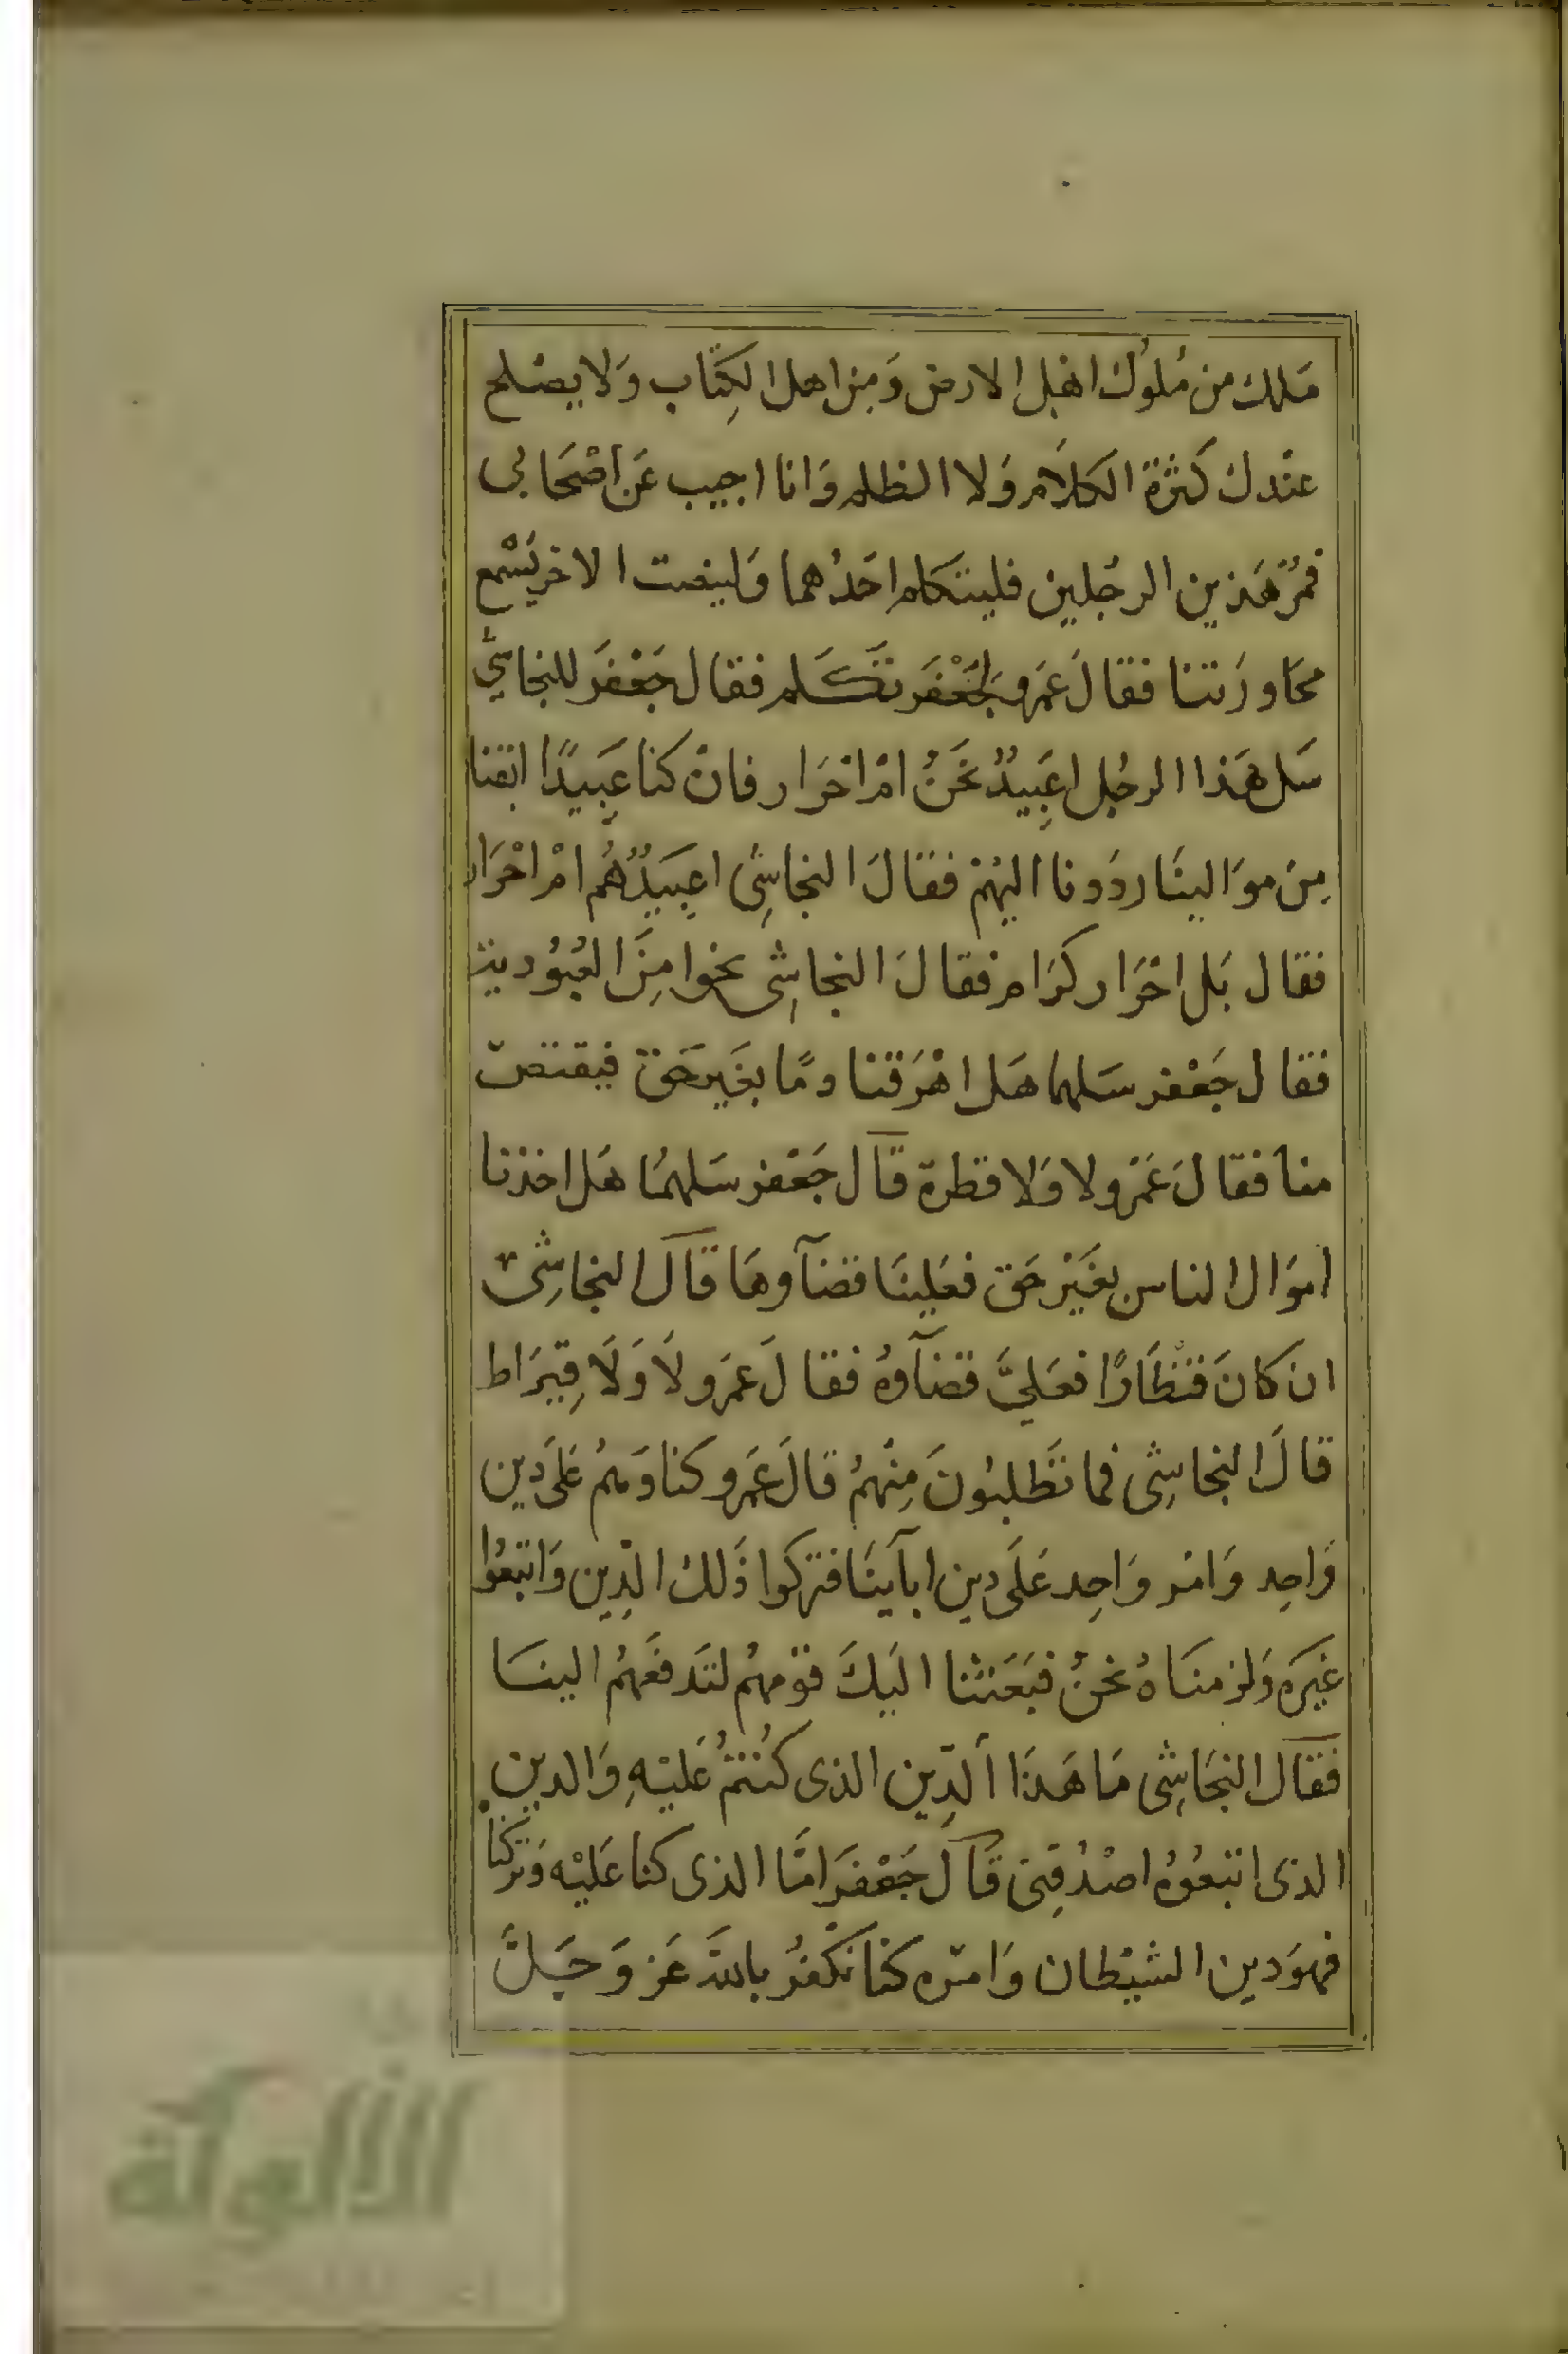 مَلك من مُلوُك اهْل الارض وَمِن اهل الكِتَاب وَلا يصْلح
عنْدك كَثْرَة الكلاَم وَلا الظلم وَانا اجيب عَن اصْحَابى
فمُرْ هَذين الرجُلين فليتكلم احَدُهما وَلينصت الاخر يَسْمع
محَاورَتنا فقالَ عَمرو لجَعْفَر تَكَلم فقال جَعْفَر للنجاشىّ
سَل هَذا الرجُل اعَبِيدٌ نَحَنُ امْ احْرَار فانْ كنا عَبِيدًا ابَقنا
مِن موَالينَا ردَدونا اليْهمْ فقالَ النجاشِى اعَبِيَدٌ هُم امْ احْرَار
فقال بَل احْرَار كرَام فقالَ النجاشِى نجوا مِنَ العُبوُدية
فقال جَعْفر سَلهما هَل اهْرَقنا دمًا بغَير حَق فيقتصّ
منا فقالَ عَمْرو لا وَلا قطرة قَال جَعْفر سَلهمُا هَل اخذنا
اموَال الناس بغَيْر حَق فعَلينَا قضآوهَا قَال النجاشِىّ
ان كانَ قنْطَارًا فعَليَّ قضآوهُ فقالَ عَمَرو لاَ وَلَا قِيرَاط
قالَ النجاشِى فما تَطلبُونَ مِنْهمُ قالَ عَمَرو كنا وَهمُ عَلَى دين
وَاحِد وَامْر وَاحِد عَلَى دِين ابآينَا فتركوا ذَلكَ الدِين وَاتبَعُوا
غيَره وَلزمنَاهُ نحنُ فبَعَثنا اليَكَ قوْمهمُ لتَدفَعهمُ الينَا
فقَال النجَاشِى مَا هَذا الدِّين الذى كُنتمُ عَليْهِ وَالدين
الذى اتبعُوُه اصْدُقِنى قَال جَعْفَر امَّا الذى كنا عَليْه وَتركنَا
فهوَ دين الشيْطان وَامرْه كنا نَكفرُ بالله عَز وَجَلَّ
الألوكة